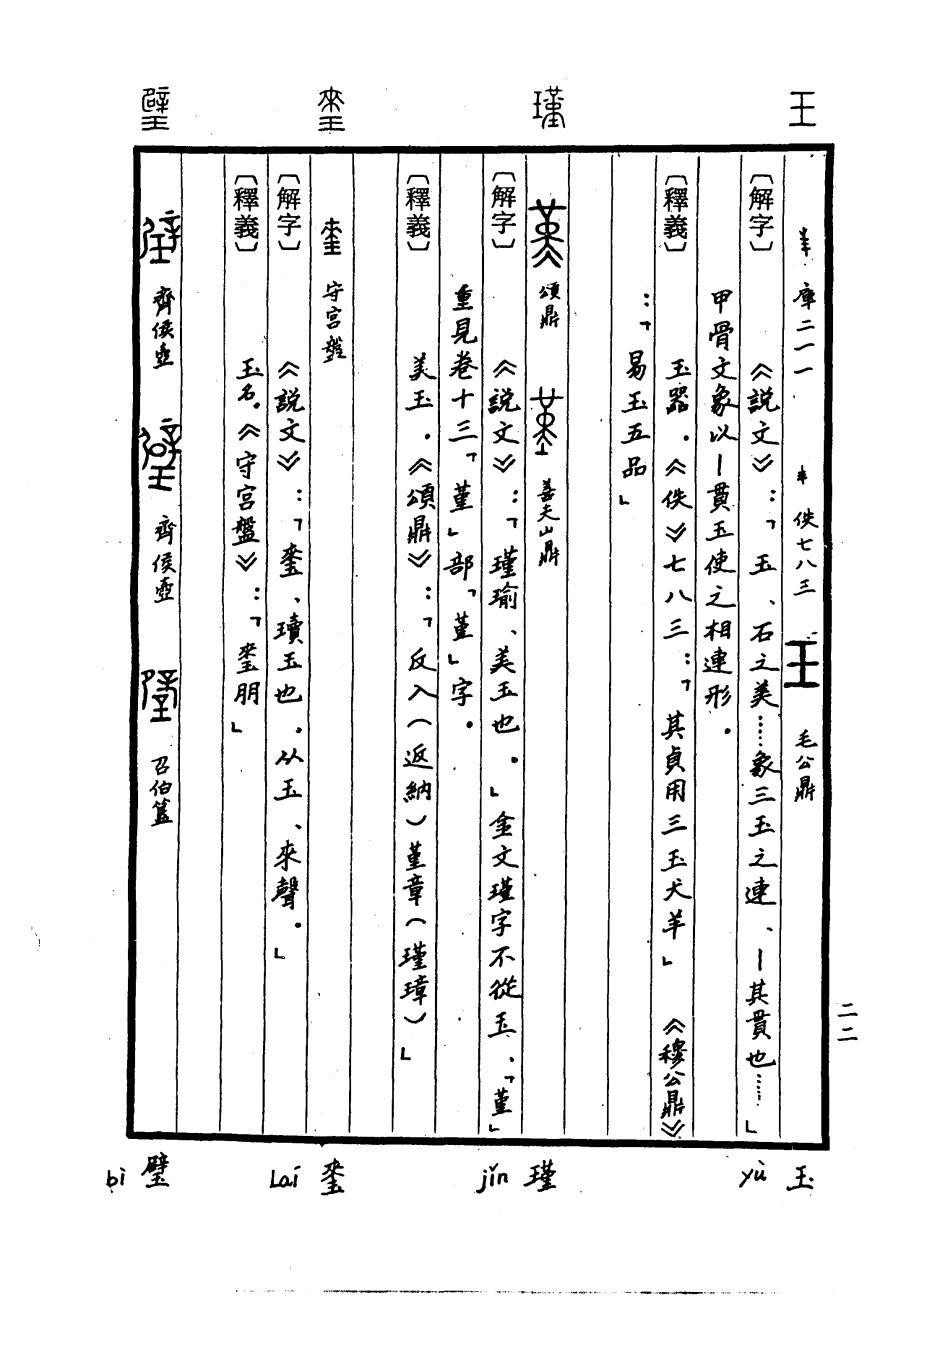 玉 庫二一一 佚七八三 毛公鼎
〔解字〕《説文》：「玉、石之美……象三玉之連、丨其貫也……」
甲骨文象以丨貫玉使之相連形．
〔釋義〕玉器．《佚》七八三：「其貞用三玉犬羊」《穆公鼎》
：「易玉五品」
瑾 頌鼎 善夫山鼎
〔解字〕《説文》：「瑾瑜、美玉也．」金文瑾字不從玉、「堇」
重見卷十三「堇」部「堇」字．
〔釋義〕美玉．《頌鼎》：「反入（返納）堇章（瑾璋）」
琜 守宮盤
〔解字〕《説文》：「琜、瓄玉也．从玉、來聲．」
〔釋義〕玉名．《守宮盤》：「琜朋」
璧 齊侯壺 齊侯壺 召伯簋
二二
玉 yù
瑾 jǐn
琜 Lái
璧 bì